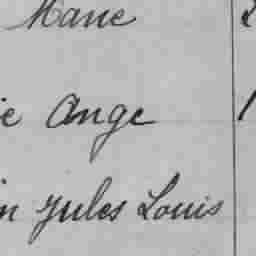 Marie
ie Ange
in Jules Louis